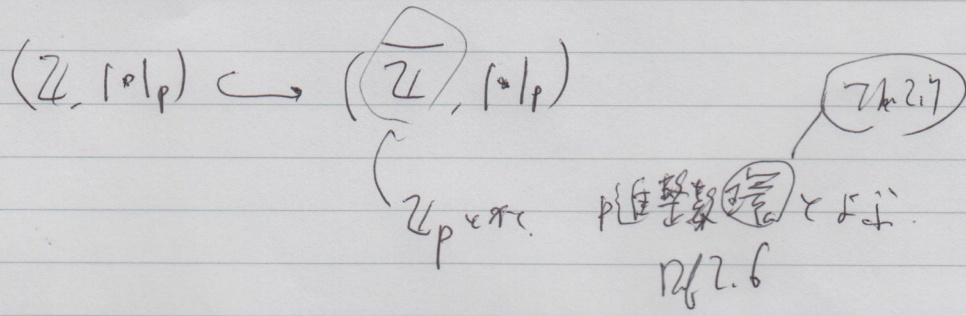 (ℤ, |•|ₚ) ↪ (ℤ̅, |•|ₚ)
Thm 2.7
ℤₚ と書く p進整数環とよぶ.
Def 2.6